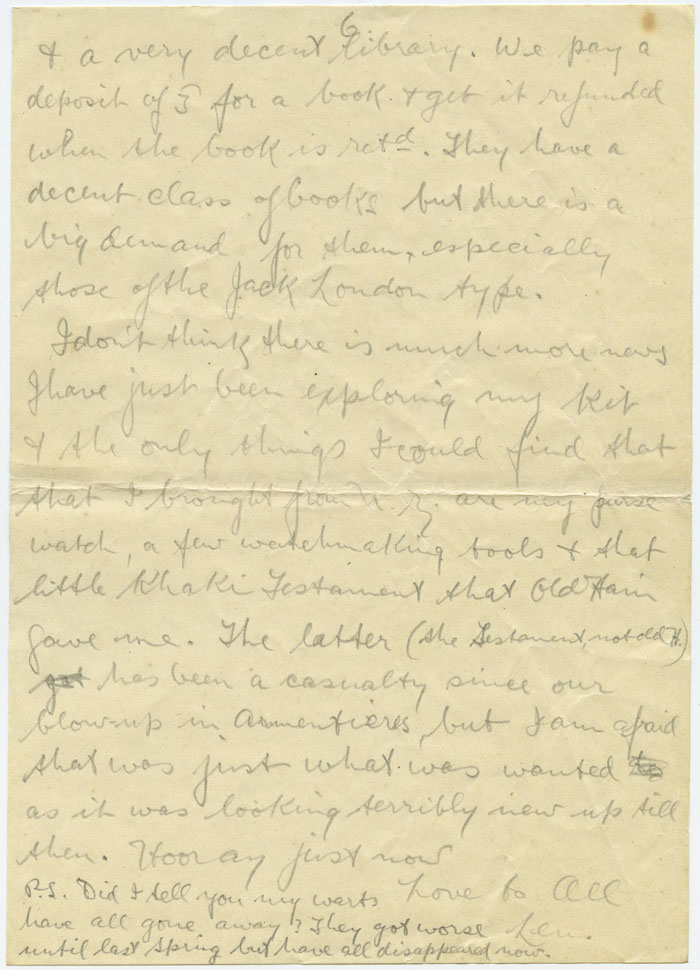 6
& a very decent library. We pay a
deposit of 5 for a book & get it refunded
when the book is retd. They have a
decent class of books but there is a
big demand for them, especially
those of the Jack London type.
I don't think there is much more news
I have just been exploring my kit
& the only things I could find that
that I brought from N.Z. are my purse
watch, a few watchmaking tools & that
little Khaki Testament that Old Hain
gave me. The latter (the Testament, not old H.)
got has been a casualty since our
blow-up in Armentieres, but I am afraid
that was just what was wanted
as it was looking terribly new up till
then. Hooray just now
Love to All
Len.
P.S. Did I tell you my warts
have all gone away? They got worse
until last Spring but have all disappeard now.